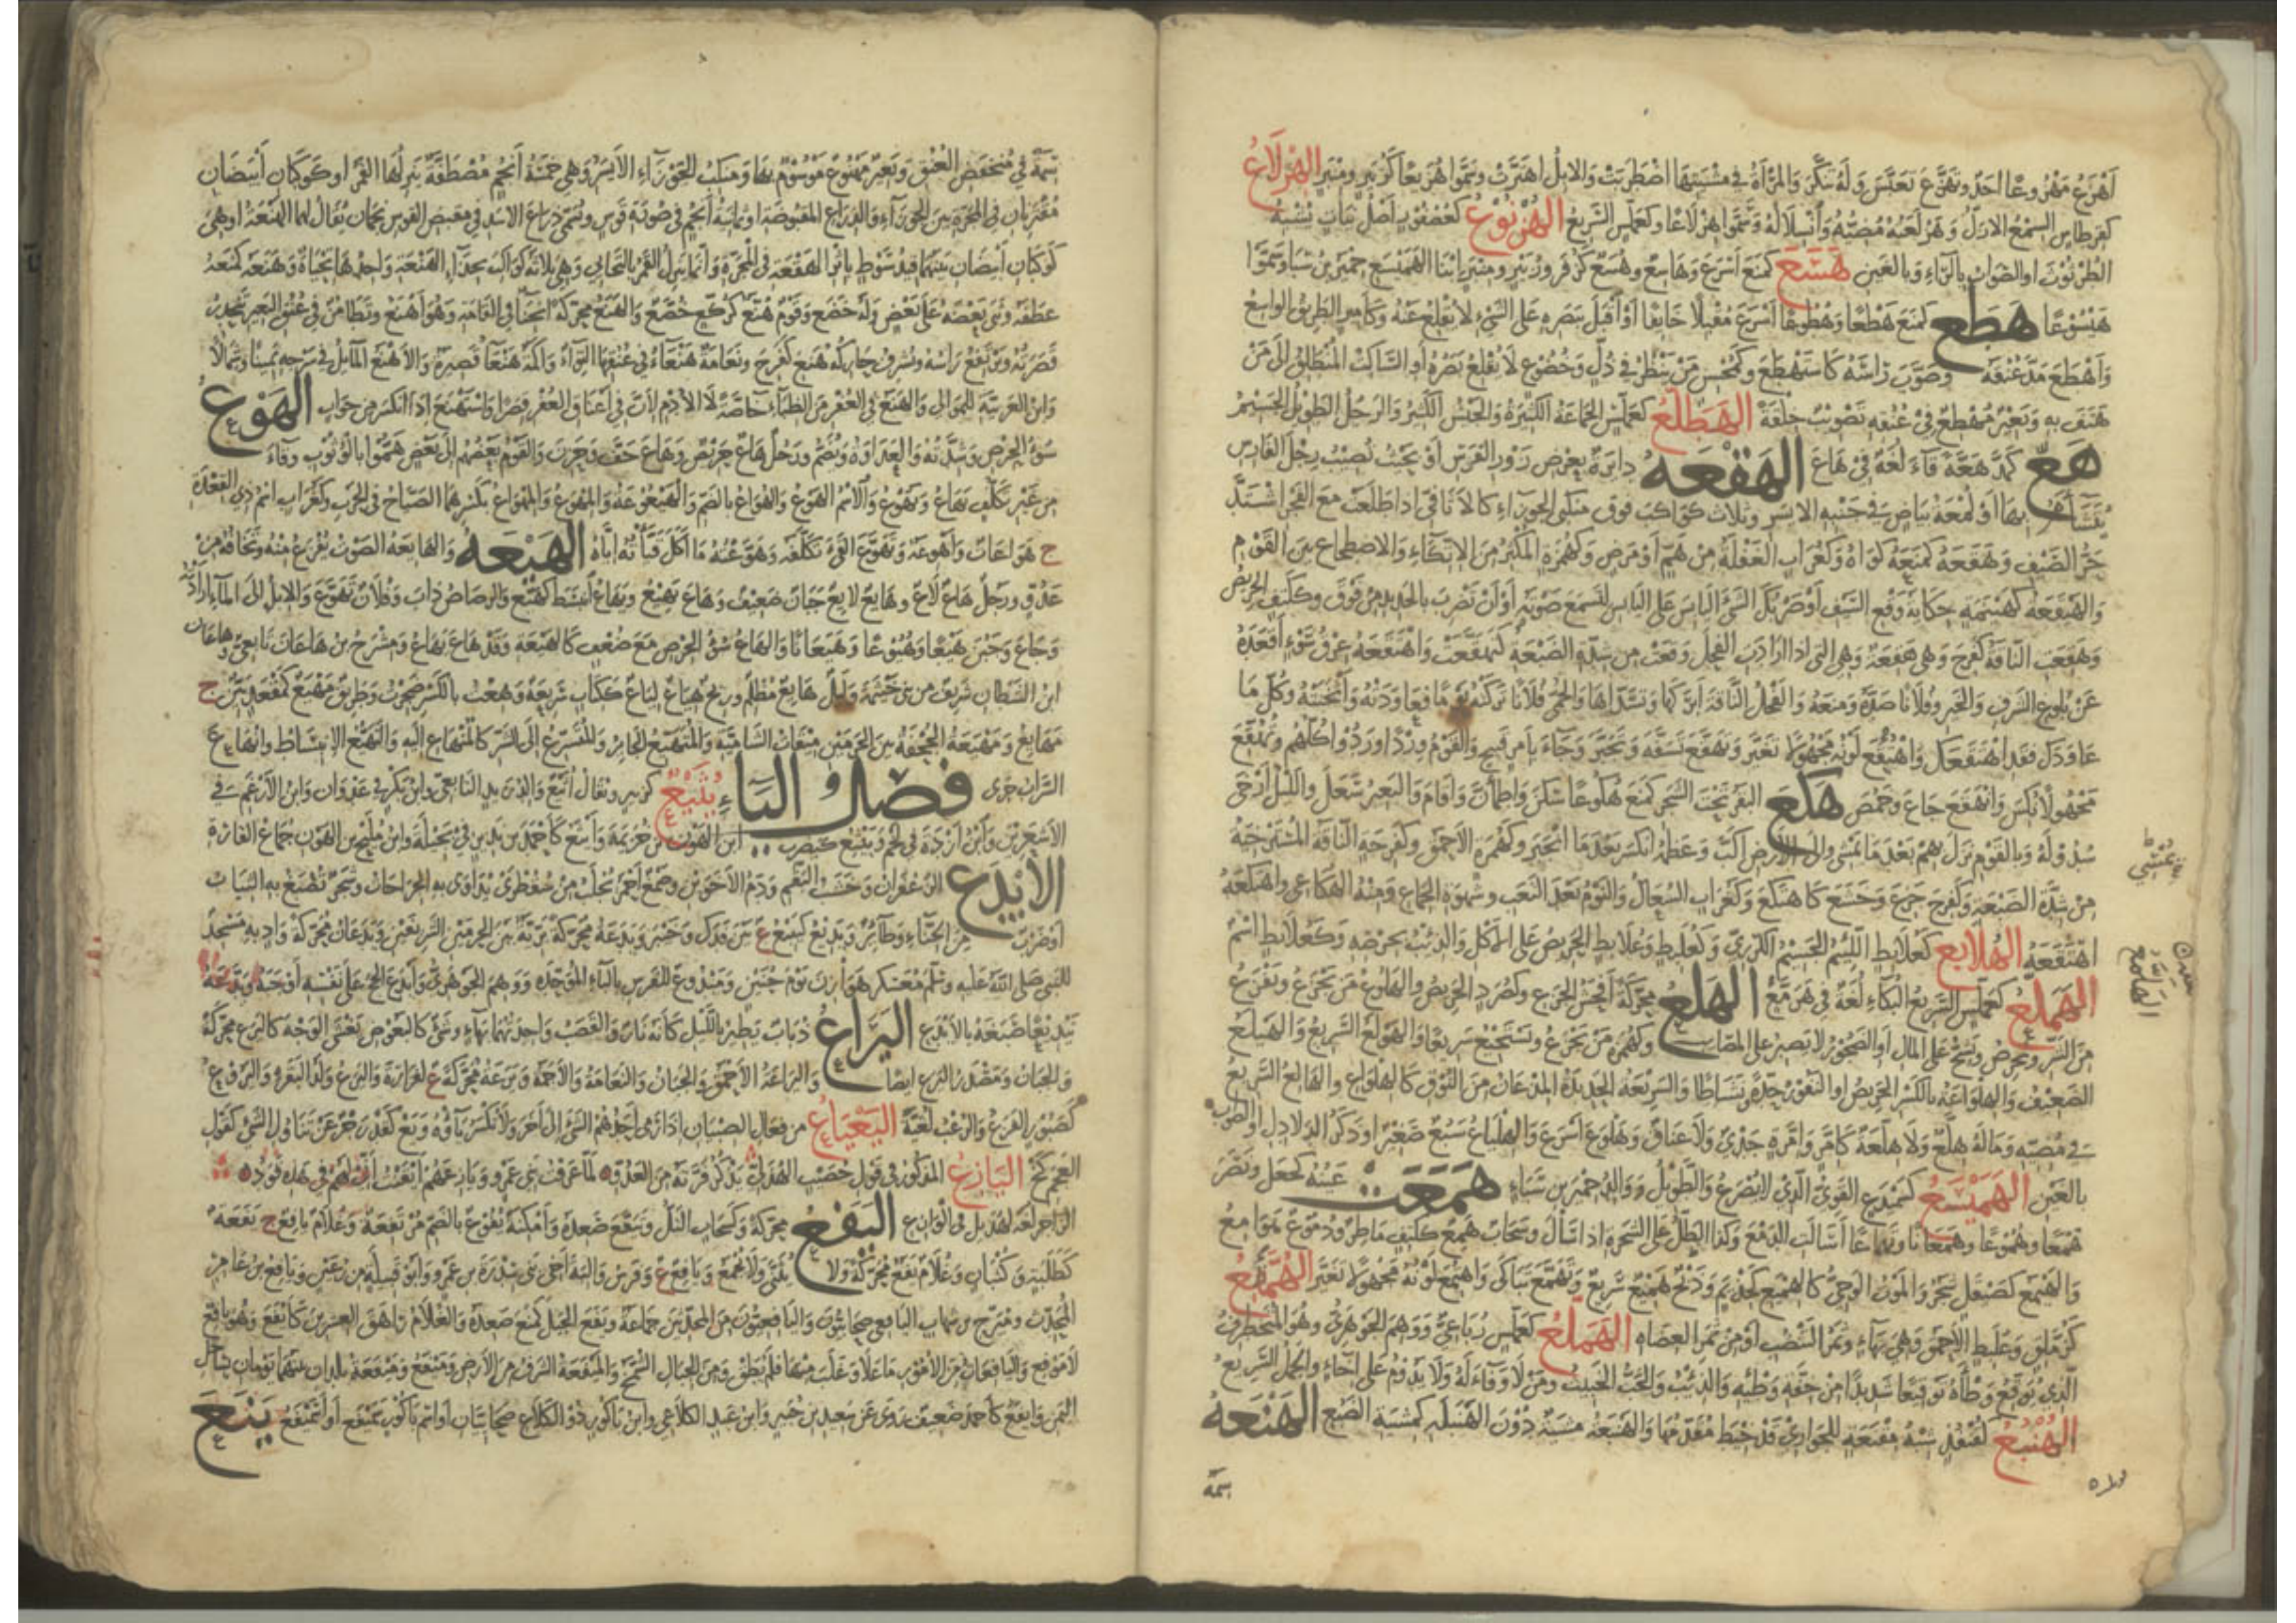 اهزع مهزوعا احد وتهزع تعبس وله تنكر والمرأة في مشيتها اضطربت والابل اهتزت وسموا هزيعا كزبير ومنبر الهزلاع
كقرطاس السمع الازل وهزلعته مضيه وانسلاله وسموا هزلاعا وكعملس السريع الهزنوع كعصفور اصل نبات يشبه
الطرثوث او الصواب بالراء وبالغين هسع كمنع اسرع وهاسع وهسع كزفر وزبير ومنبر ابنا الهميسع حمير بن سبا وسموا
هيسوعا هطع كمنع هطعا وهطوعا اسرع مقبلا خايفا او اقبل ببصره على الشيء لا يقلع عنه وكامير الطريق الواسع
واهطع مد عنقه وصوب راسه كاستهطع وكمحسن من ينظر في ذل وخضوع لا يقلع بصره او الساكت المنطلق الى من
هتف به وبعير مهطع في عنقه تصويب خلقة الهطلع كعملس الجماعة الكثيرة والجيش الكثير والرجل الطويل الجسيم
هع كمد هعة قاء لغة في هاع الهقعه دايرة بعرض زور الفرس او بحيث تصيب رجل الفارس
يتشاءم بها او لمعة بياض في جنبه الايسر وثلاث كواكب فوق منكبي الجوزاء كالاثافي اذا طلعت مع الفجر اشتد
حر الصيف وهقعه كمنعه كواه وكغراب الغفلة من هم او مرض وكهمزة المكثر من الاتكاء والاضطجاع بين القوم
والهيقعة كهينمة حكاية وقع السيف او ضربك الشيء اليابس على اليابس لتسمع صوته او ان تضرب بالحديد من فوق وككتف الحريص
وهقعت الناقة كفرح وهي هقعة وهي التي اذا ارادت الفحل وقعت من شدة الضبعة كتهقعت واهتقعه عرق سوء اقعده
عن بلوغ الشرف والخير وفلانا صده ومنعه والفحل الناقة ابركها وتسداها والحمى فلانا تركته يوما فعاودته واثخنته وكل ما
عاودك فقد اهتقعك واهتقع لونه مجهولا تغير وتهقع تسفه وتكبر وجاء بامر قبيح والقوم وردا وردوا كلهم وتهقع
مجهولا نكس وانهقع جاع وخمص هكع البقر تحت الشجر كمنع هكوعا سكن واطمان واقام والبعير سعل والليل ارخى
سدوله وبالقوم نزل بهم بعد ما يمشي والى الارض اكب وعظمه انكسر بعد ما انجبر وكهمزة الاحمق وكفرحة الناقة المسترخية
من شدة الضبعة وكفرح جزع وخشع كاهتكع وكغراب السعال والنوم بعد التعب وشهوة الجماع ومنه الهكاعي واهتكعه
اهتقعه الهلابع كعلابط اللئيم الجسيم الكرزي وكعلبط وعلابط الحريص على الاكل والذئب بحرصه وكعلابط اسم
الهملع كعملس السريع البكاء لغة في هرمع الهلع محركة افحش الجزع وكصرد الحريص والهالع من يجزع ويفزع
من الشر ويحرص ويشح على المال او الضجور لا يصبر على المصائب وكهمزة من يجزع ويستجيع سريعا والهولع السريع والهيلع
الضعيف والهلواعة بالكسر الحريص او النفور حدة ونشاطا والسريعة الحديدة المذعان من النوق كالهلواع والهالع السريع
في مضيه وماله هلع ولا هلعة كامر وامرة جدي ولا عناق وهلوع اسرع والهلياع سبع صغير او ذكر الدلادل او الصواب
بالغين الهميسع كسميدع القوي الذي لا يصرع والطويل ووالد حمير بن سباء همعت عينه كجعل ونصر
همعا وهموعا وهمعانا وتهماعا اسالت الدمع وكذا الطل على الشجرة اذا سال وسحاب همع ككتف ماطر ودموع هوامع
والهيمع كصيقل شجر والموت الوحي كالهميع كحذيم وذبح هميع سريع وتهمع تباكى واهتمع لونه مجهولا تغير الهمقع
كزملق وعلبط الاحمق وهي بهاء وثمر التنضب او من ثمر العضاه الهملع كعملس رباعي ووهم الجوهري وهو المتخطرف
الذي يوقع وطأه توقيعا شديدا من خفة وطئه والذئب والخب الخبيث ومن لا وفاء له ولا يدوم على اخاء والجمل السريع
الهنبع كقنفذ شبه مقنعة للجواري قد خيط مقدمها والهنبعة مشية دون الهنبلة كمشية الضبع الهنعه
سمة
سمة في منخفض العنق وبعير مهنوع موسوم بها ومنكب الجوزاء الايسر وهي خمسة انجم مصطفة ينزلها القمر او كوكبان ابيضان
مقتربان في المجرة بين الجوزاء والذراع المقبوضة او ثمانية انجم في صورة قوس وتسمى ذراع الاسد في مقبض القوس نجمان يقال لهما الهنعة او هي
كوكبان ابيضان بينهما قيد سوط باثر الهقعة في المجرة وانما ينزل القمر بالتحايي وهي ثلاثة كواكب بحذاء الهنعة واحدها تحياة وهنعه كمنعه
عطفه وثنى بعضه على بعض وله خضع وقوم هنع كركع خضع والهنع محركة انحناء في القامة وهو اهنع وتطامن في عنق البعير ينحدر
قصرته ويرتفع راسه ويشرف حاركه هنع كفرح ونعامة هنعاء في عنقها التواء واكمة هنعاء قصيرة والاهنع المايل في سرجه يمينا وشمالا
وابن العربية للموالي والهنع في العفر من الظباء خاصة لا الادم لان في اعناق العفر قصرا واستهنع اذا انكسر من جواب الهوع
سوء الحرص وشدته والعداوة ويضم ورجل هاع حريص وهاع خف وحزن والقوم بعضهم الى بعض هموا بالوثوب وقاء
من غير تكلف يهاع ويهوع والاسم الهوع والهواع بالضم والهيعوعة والمهوع والمهواع بكسرهما الصياح في الحرب وكغراب اسم ذي القعدة
ج هواعات واهوعة وتهوع القيء تكلفه وهوعته ما اكل قيأته اياه الهيعه والهايعة الصوت تفزع منه وتخافه من
عدو ورجل هاع لاع وهايع لايع جبان ضعيف وهاع يهيع ويهاع انبسط كتهيع والرصاص ذاب وفلان تهوع والابل الى الماء ارادته
وجاع وجبن هيعا وهيوعا وهيعانا والهاع سوء الحرص مع ضعف كالهيعة وقد هاع يهاع ومشرح بن هاعان تابعي وهاعان
ابن الشيطان شريف من بني خيثمة وليل هايع مظلم وريح هياع لياع ككتاب سريعة وهعت بالكسر ضجرت وطريق مهيع كمقعد بين ج
مهايع ومهيعة الجحفة بين الحرمين ميقات الشامية والمتهيع الجاير وللتسرع الى الشر كالمنهاع اليه والتهيع الانبساط وانهاع
السراب جرى فصل الياء يثيع كزبير ويقال اثيع والد زيد التابعي وابن بكر في عدوان وابن الارغم في
الاشعريين وابن ازدة في لخم ويثيع كيضرب ابن الهون بن خزيمة واثيع كاحمد بن نذير في بجيلة وابن مليح بن الهون جماع القارة
الايدع الزعفران وخشب البقم ودم الاخوين وصمغ احمر يجلب من سقطرى يداوى به الجراحات وشجر تصبغ به الثياب
او ضرب من الحناء وطائر ويديع كيبيع ع بين فدك وخيبر ويدعة محركة برية بين الحرمين الشريفين ويدعان محركة واد به مسجد
للنبي صلى الله عليه وسلم معسكر هوازن يوم حنين وميدوع للفرس بالباء الموحدة ووهم الجوهري وايدع الحج على نفسه اوجبه ويدعه
تيديعا صبغه بالايدع اليراع ذباب يطير بالليل كانه نار والقصب واحدتهما بهاء وشيء كالبعوض يغشى الوجه كاليرع محركة
والجبان ومصدر اليرع ايضا واليراعة الاحمق والجبان والنعامة والاجمة ويرعة محركة ع لفزارة واليرع ولد البقرة واليروع
كصبور الفزع والرعب لغية اليعياع من فعال الصبيان اذا رمى احدهم الشيء الى اخر ولا تكسر ياؤه ويع كقد زجر عن تناول الشيء كقول
العجم كخ اليازع المذكور في قول خصيب الهذلي يذكر فرته من العدو لما عرفت بني عمرو ويازعهم ايقنت اني لهم في هذه قود
الزاجر لغة لهذيل في الوازع اليفع محركة وكسحاب التل ويفع صعده وامكنة يفوع بالضم مرتفعة وغلام يافع ج يفعة
كطلبة وكثبان وغلام يفع محركة ولا يثنى ولا يجمع ويافع ع وفرس والبة اخي بني سدرة بن عمرو وابو قبيلة من رعين ويافع بن عامر
المحدث ومبرح بن شهاب اليافعي صحابيون واليافعيون من المحدثين جماعة ويفع الجبل كمنع صعده والغلام راهق العشرين كايفع وهو يافع
لا موفع واليافعات من الامور ما علا وغلب منها فلم يطق ومن الجبال الشمخ والميفعة الشرف من الارض وميفع وميفعة بلدان بينهما يومان بساحل
اليمن وايفع كاحمد ضعيف روى عن سعيد بن جبير وابن عبد الكلاعي وابن ناكور ذو الكلاع صحابيان او اسم ناكور سميفع او اسميفع ينع